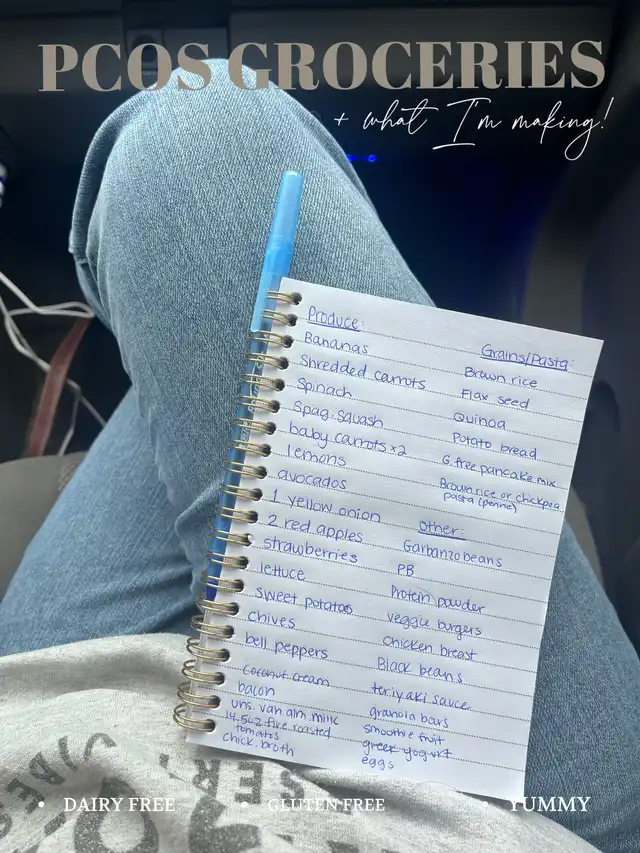 PCOS GROCERIES
+ what I'm making!
Produce:
Bananas
Shredded carrots
Spinach
Spag. squash
baby carrots x2
lemons
avocados
1 yellow onion
2 red apples
strawberries
lettuce
sweet potatoes
chives
bell peppers
Coconut cream
bacon
uns. van. alm. milk
14.5 oz fire roasted
tomatos
chick. broth
Grains/Pasta:
Brown rice
Flax seed
Quinoa
Potato bread
G. free pancake mix
Brown rice or chickpea
pasta (penne)
Other:
Garbanzo beans
PB
Protein powder
veggie burgers
chicken breast
Black beans
teriyaki sauce
granola bars
smoothie fruit
greek yogurt
eggs
• DAIRY FREE • GLUTEN FREE • YUMMY